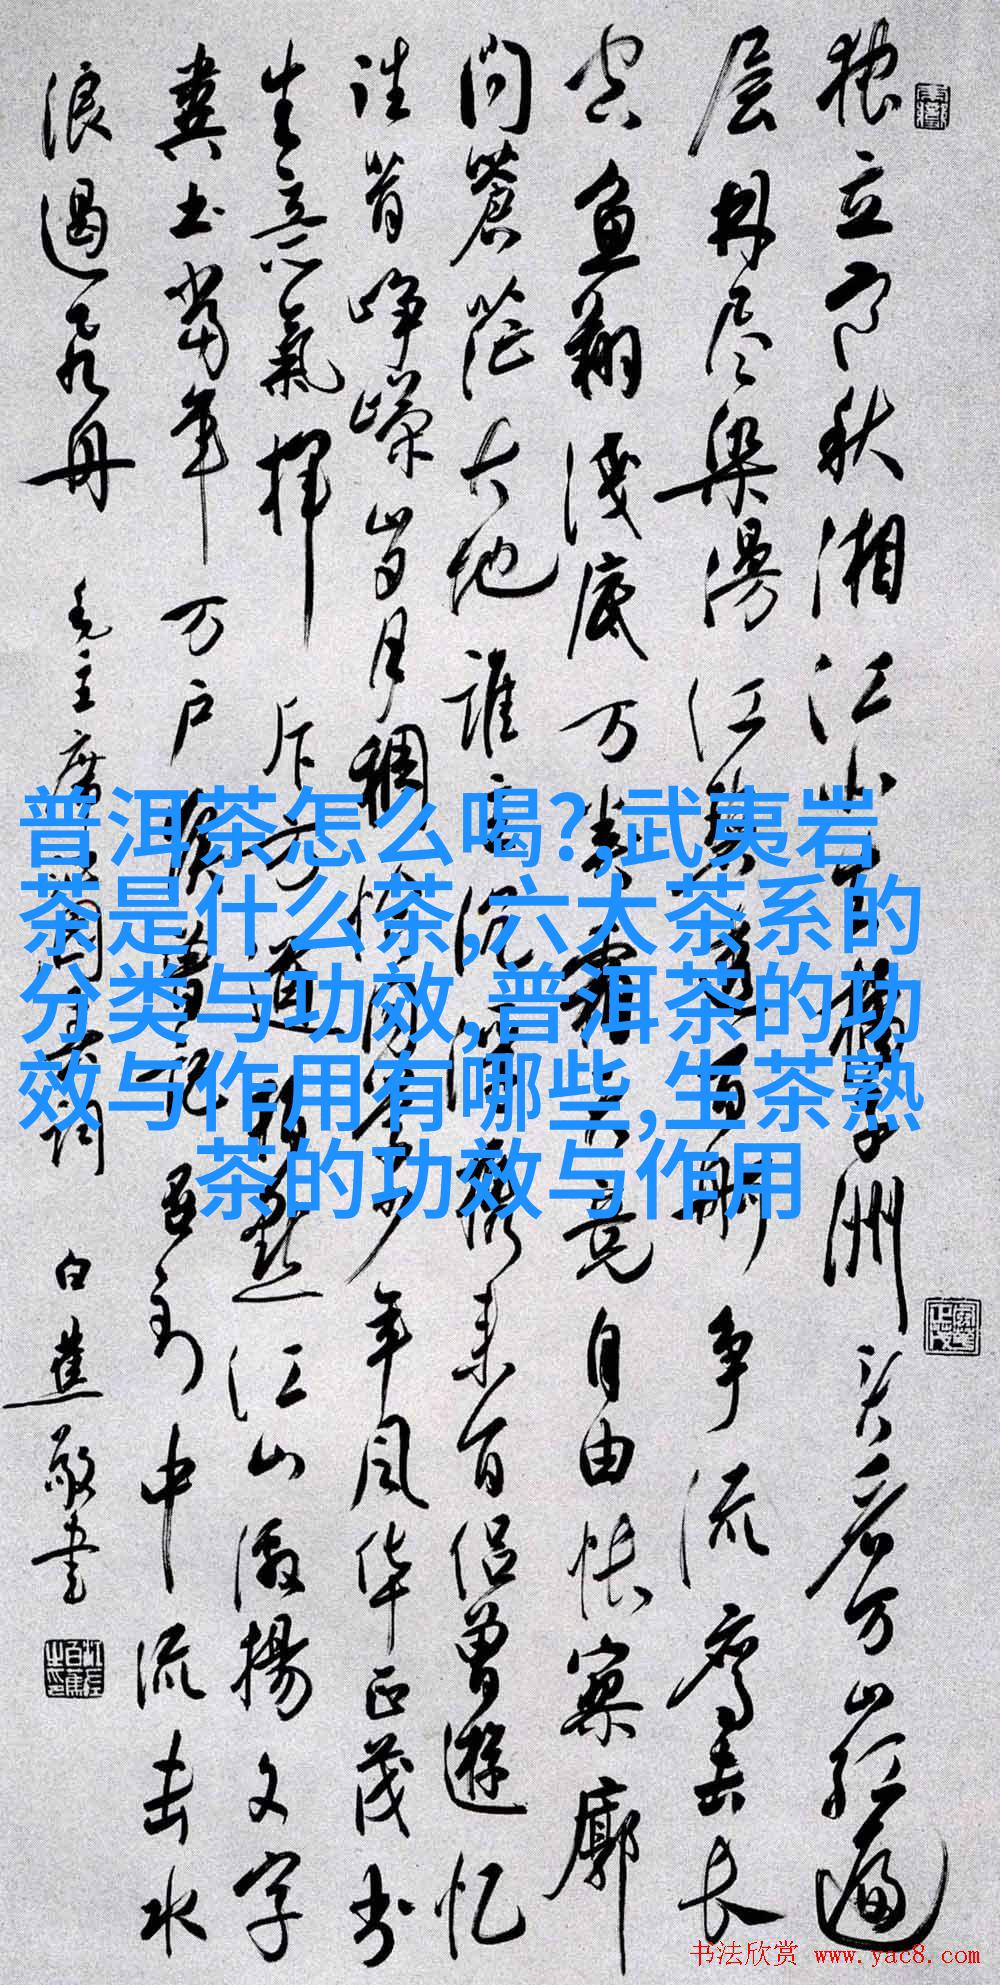 独立寒秋湘江北去橘子洲头看万山红遍
层林尽染漫江碧透百舸争流鹰击长
空鱼翔浅底万类霜天竞自由怅寥廓
问蒼茫大地谁主沉浮携来百侣曾遊忆
往昔峥嵘岁月稠恰同学少年风华正茂书
生意氣挥斥方遒指点江山激揚文字
粪土当年万户侯曾记否到中流击水
浪遏飞舟 毛主席沁园春词 白蕉敬书
普洱茶怎么喝?,武夷岩
茶是什么茶,六大茶系的
分类与功效,普洱茶的功
效与作用有哪些,生茶熟
茶的功效与作用
书法欣赏 www.yac8.com